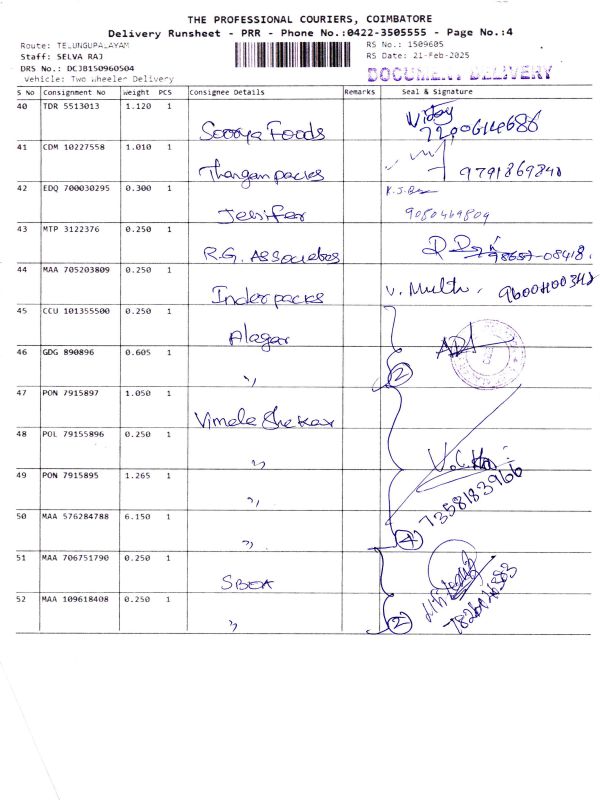 THE PROFESSIONAL COURIERS, COIMBATORE
Delivery Runsheet - PRR - Phone No.:0422-3505555 - Page No.:4
Route: TELUNGUPALAYAM RS No.: 1509605
Staff: SELVA RAJ RS Date: 21-Feb-2025
DRS No.: DCJB150960504
Vehicle: Two Wheeler Delivery DOCUMENT DELIVERY
S No Consignment No Weight PCS Consignee Details Remarks Seal & Signature
40 TDR 5513013 1.120 1
Soorya Foods
41 CDM 10227558 1.010 1
Thangam packs
42 EDQ 700030295 0.300 1
Jenifer
43 MTP 3122376 0.250 1
R.G. Associates
44 MAA 705203809 0.250 1
Inder packs V. Muthu
45 CCU 101355500 0.250 1
Alagar
46 GDG 890896 0.605 1
" 2
47 PON 7915897 1.050 1
Vimala Shekar
48 POL 79155896 0.250 1
"
49 PON 7915895 1.265 1
" 7358183966
50 MAA 576284788 6.150 1
" 4
51 MAA 706751790 0.250 1
SBEA
52 MAA 109618408 0.250 1
" 2